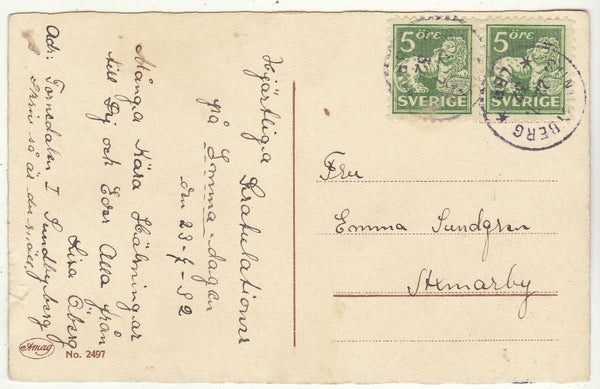 Hjärtliga Gratulationer
på Emma-dagen
den 23-7-32
Många Kära Hälsningar
till Dig och Eder Alla från
Lisa Öberg
Adr: Tornedalen I Sundbyberg
Skriv så är du snäll
Amag
No. 2497
5 ÖRE
SVERIGE
5 ÖRE
SVERIGE
BERG
Fru
Emma Sundgren